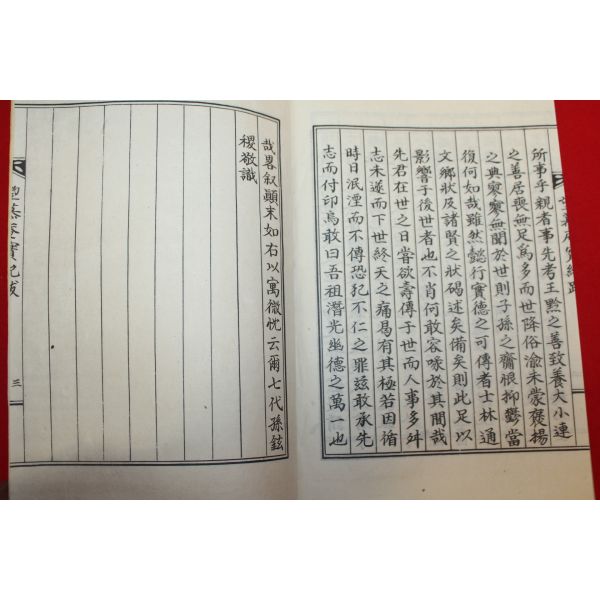 所事乎親者事先考王黔之善致養大小連
之善居喪無足爲多而世降俗渝未蒙褒揚
之典寥寥無聞於世則子孫之齎恨抑鬱當
復何如哉雖然懿行實德之可傳者士林通
文鄉狀及諸賢之狀碣述矣備矣則此足以
影響于後世者也不肖何敢容喙於其間哉
先君在世之日嘗欲壽傳于世而人事多舛
志未遂而下世終天之痛曷有其極若因循
時日泯湮而不傳恐犯不仁之罪玆敢承先
志而付印焉敢曰吾祖潛光幽德之萬一也
哉畧叙顚末如右以寓微忱云爾七代孫鉉
稷敬識
慕 實紀跋
三